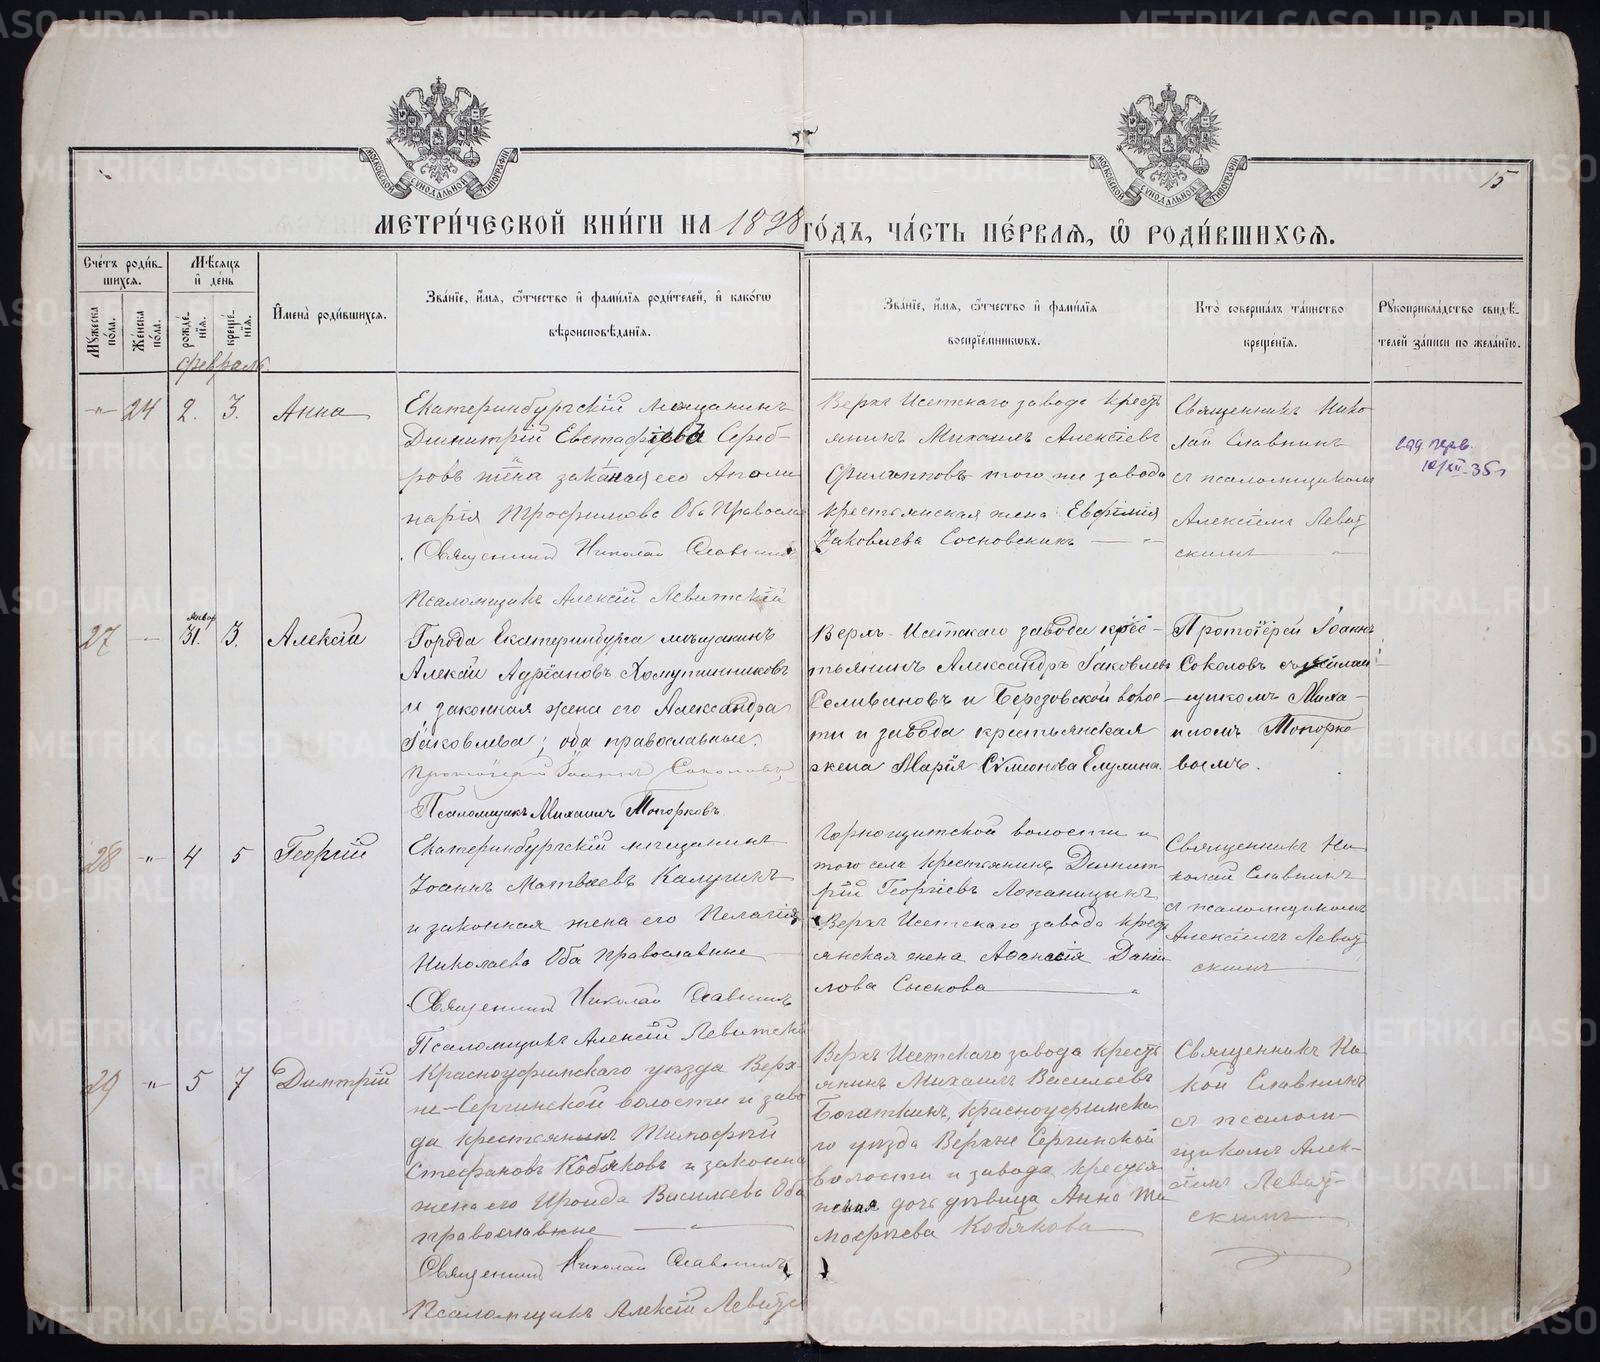 15
МОСКОВСКОЙ СѴНОДАЛЬНОЙ ТИПОГРАФІИ
МОСКОВСКОЙ СѴНОДАЛЬНОЙ ТИПОГРАФІИ
МЕТРИ́ЧЕСКОЙ КНИ́ГИ НА 1898 ГО́ДЪ, ЧА́СТЬ ПЕ́РВАЯ, Ѽ РОДИ́ВШИХСЯ.
Сче́тъ роди́в-
шихся.
Мꙋ́жеска по́ла.
Же́нска по́ла.
Мѣ́сяцъ
и҆ де́нь
рожде́-нїя.
креще́-нїя.
И҆мена̀ роди́вшихся.
Зва́нїе, и҆́мя, ѻ҆́тчество и҆ фами́лїя роди́телей, и҆ како́гѡ
вѣроисповѣ́данїя.
Зва́нїе, и҆́мя, ѻ҆́тчество и҆ фами́лїя
воспрїе́мникѡвъ.
Кто̀ соверша́лъ та́инство
креще́нїя.
Рꙋкоприкла́дство свидѣ́-
телей за́писи по жела́нію.
февраль
-"- 24 2. 3. Анна
Екатеринбургскій мещанинъ
Димитрій Евстафіевъ Сереб-
ровъ и законная его
нарія Трофимова Оба Правосла
Священникъ Николай Славнинъ
Псаломщикъ Алексій Левитскій
Верхъ Исетскаго завода кресть
янинъ Михаилъ Алексіевъ
того же завода
крестьянская жена Евфимія
Іаковлева Сосновскихъ
Священникъ Нико-
лай Славнинъ
съ псаломщикомъ
Алексіемъ Левит
скимъ
10/XII-35г
27 — январ 31. 3. Алексій
Города Екатеринбурга мѣщанинъ
Алексій Адріановъ Хомутинниковъ
и законная жена его Александра
Іаковлева; оба православные.
Протоіерей Іоаннъ Соколовъ
Псаломщикъ Михаилъ Топорковъ
Верхъ-Исетскаго завода крес-
тьянинъ Александръ Іаковлевъ
Селивановъ и Березовской волос-
ти и завода крестьянская
жена Марія Сѵмеонова Елулина.
Протоіерей Іоаннъ
Соколовъ съ псалом
щикомъ Миха-
иломъ Топорко
вымъ.
28 -"- 4 5 Георгій
Екатеринбургскій мещанинъ
Іоаннъ Матвѣевъ Калугинъ
и законная жена его Пелагія
Николаева Оба православные
Священникъ Николай Славнинъ
Псаломщикъ Алексій Левитскій
Горнощитской волости и
того села крестьянинъ Димит-
рій Георгіевъ Лопаницынъ
Верхъ Исетскаго завода крест
янская жена Афанасія Даніи
лова Сыскова
Священникъ Ни-
колай Славнинъ
съ псаломщикомъ
Алексіемъ Левит
скимъ
29 -"- 5 7 Димитрій
Красноуфимскаго уѣзда Верх-
не-Сергинской волости и заво
да крестьянинъ Тимофей
Стефановъ Кобяковъ и законна
жена его Ироида Васильева Оба
православные
Священникъ Николай Славнинъ
Псаломщикъ Алексій Левитск
Верхъ Исетскаго завода кресть
янинъ Михаилъ Васильевъ
Богаткинъ, Красноуфимска-
го уѣзда Верхне Сергинской
волости и завода крестья
нская дочь дѣвица Анна Ти
мофеева Кобякова
Священникъ Ни-
кой Славнинъ
съ псалом-
щикомъ Алек-
сіемъ Левит-
скимъ